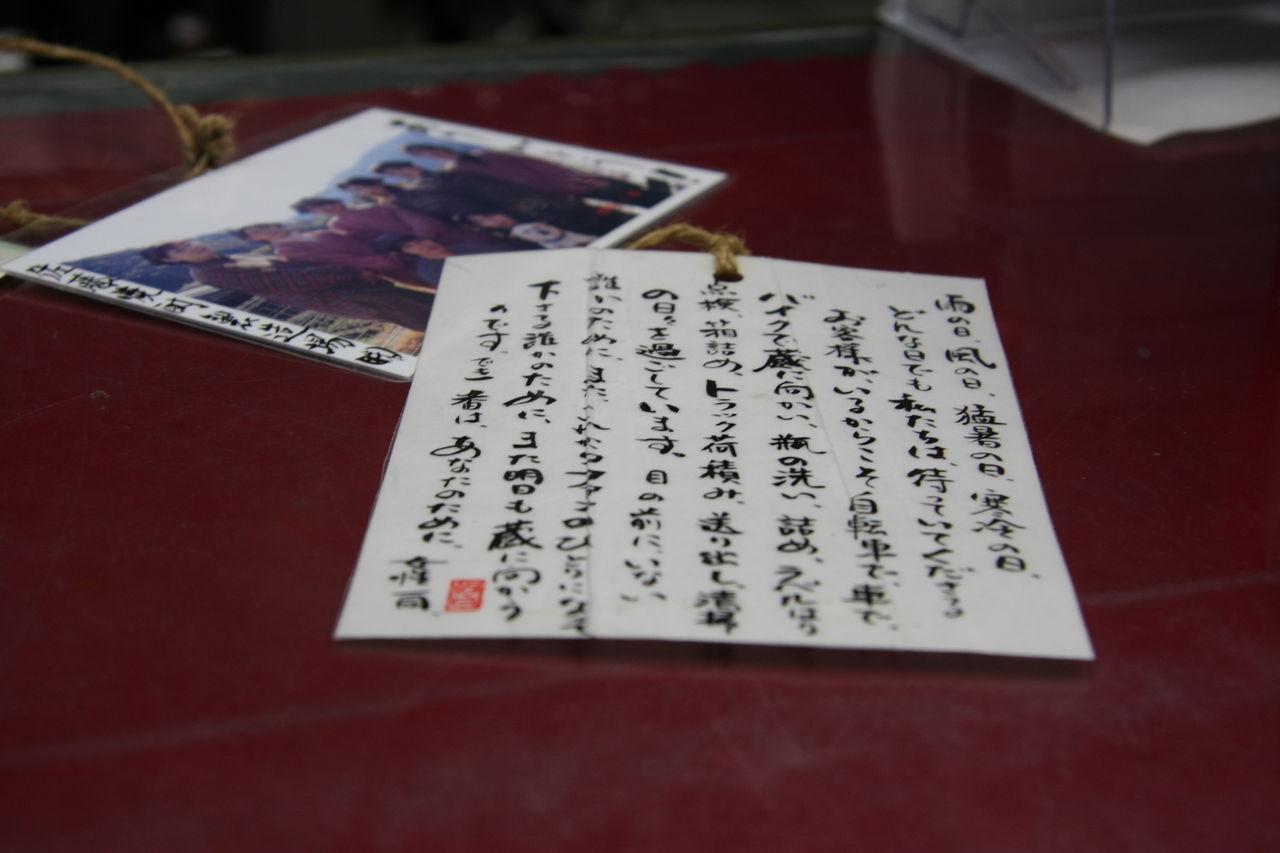 雨の日、風の日、猛暑の日、寒冷の日、
どんな日でも私たちは、待っていてくださる
お客様がいるからこそ自転車で、車で、
バイクで、蔵に向かい、瓶の洗い、詰め、ラベルはり
点検、箱詰め、トラック荷積み、送り出し、清掃
の日々を過ごしています。目の前に、いない
誰かのために、まだ ファンのひとりになって
下さる誰かのために、また明日も蔵に向かう
のです。 者は、あなたのために、